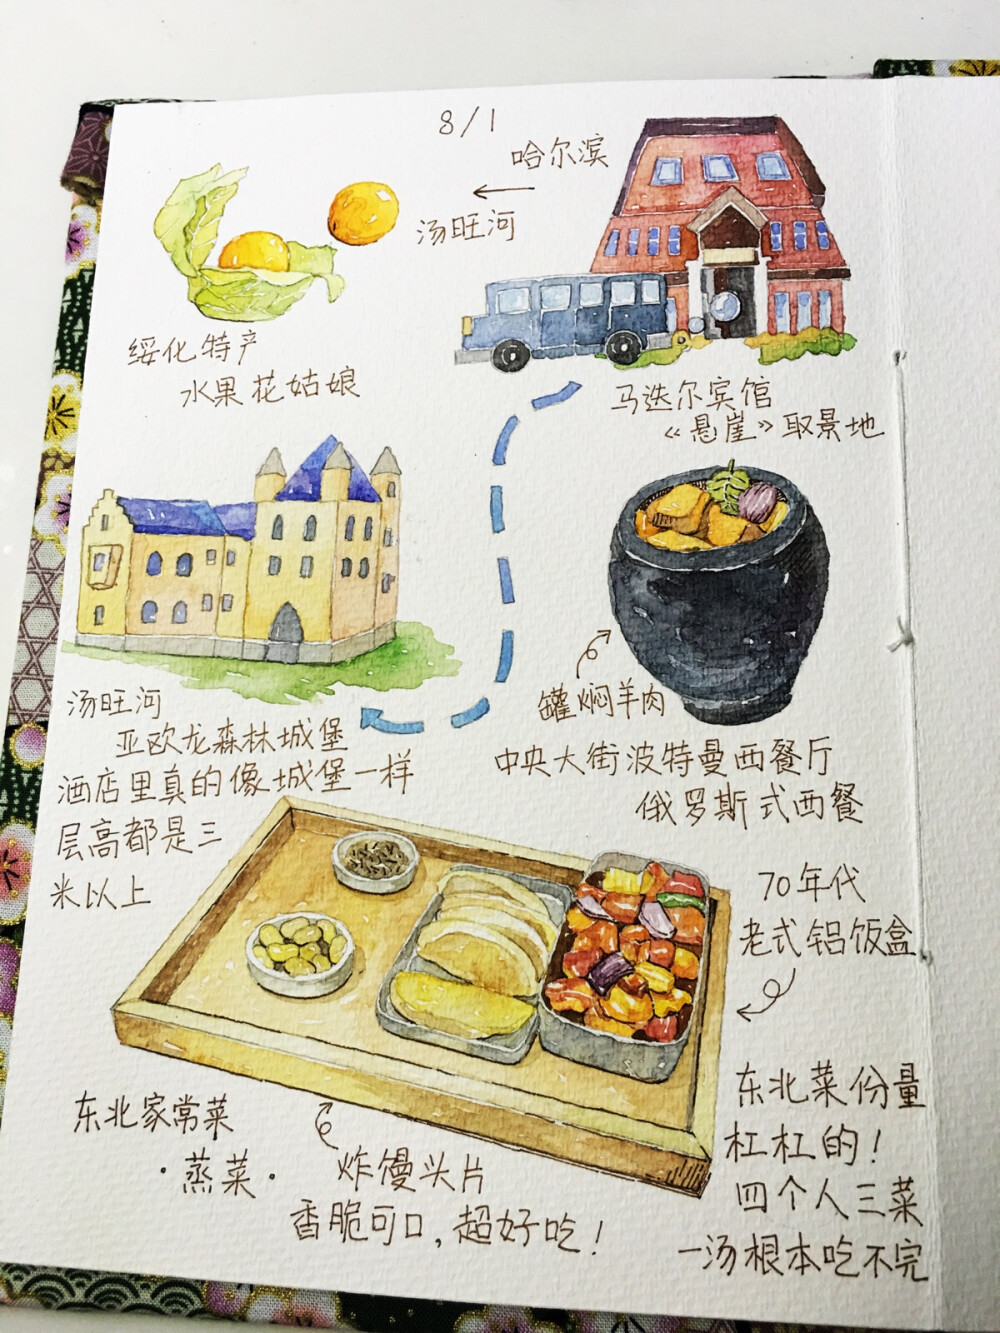 8/1
哈尔滨
汤旺河
绥化特产
水果花姑娘
马迭尔宾馆
《悬崖》取景地
罐焖羊肉
中央大街波特曼西餐厅
俄罗斯式西餐
汤旺河
亚欧龙森林城堡
酒店里真的像城堡一样
层高都是三
米以上
70年代
老式铝饭盒
东北菜份量
杠杠的！
四个人三菜
一汤根本吃不完
东北家常菜
·蒸菜·
炸馒头片
香脆可口，超好吃！